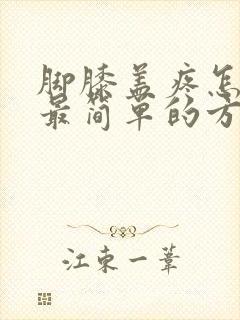 脚膝盖疼怎
最简单的方
江东一苇